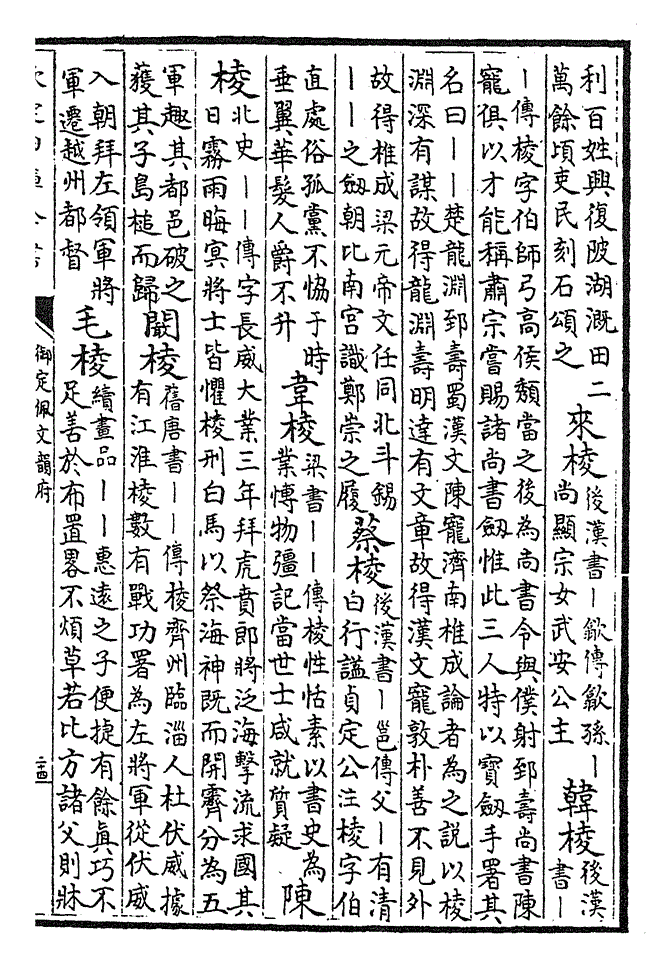 利百姓興復陂湖溉田二萬餘頃吏民刻石頌之 來棱 後漢書｜歙傳歙孫｜尚顯宗女武安公主 韓棱 後漢書｜
｜傳棱字伯師弓高侯頽當之後為尚書令與僕射郅壽尚書陳
寵俱以才能稱肅宗嘗賜諸尚書劔惟此三人特以寶劔手署其
名曰｜｜楚龍淵郅壽蜀漢文陳寵濟南椎成論者為之説以棱
淵深有謀故得龍淵壽明達有文章故得漢文寵敦朴善不見外
故得椎成梁元帝文任同北斗錫｜｜之劔朝比南宫識鄭崇之履 蔡棱 後漢書｜邕傳父｜有清白行謚貞定公注棱字伯
直處俗孤黨不恊于時垂翼華髮人爵不升 韋棱 梁書｜｜傳棱性恬素以書史為業愽物彊記當世士咸就質疑 陳
棱 北史｜｜傳字長威大業三年拜虎賁郎將泛海擊流求國其日霧雨晦冥將士皆懼棱刑白馬以祭海神既而開霽分為五
軍趣其都邑破之獲其子島槌而歸 闞棱 舊唐書｜｜傳棱齊州臨淄人杜伏威據有江淮棱數有戰功署為左將軍從伏威
入朝拜左領軍將軍遷越州都督 毛棱 續畫品｜｜惠遠之子便捷有餘真巧不足善於布置畧不煩草若比方諸父則牀
御定佩文韻府